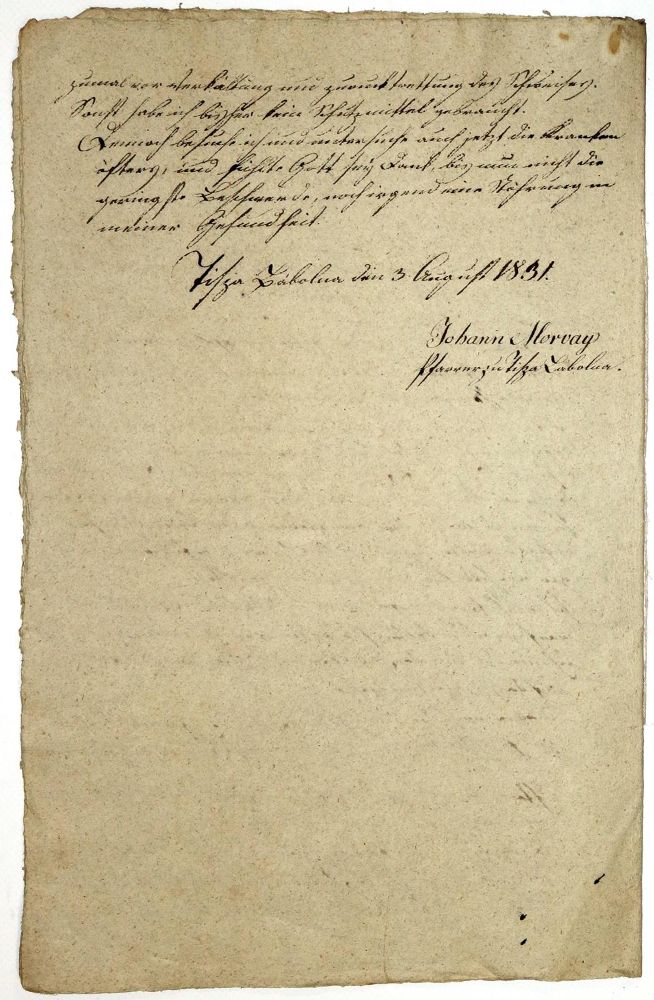 zumal vor Verkältung und zurücktrettung des Schweises.
Sonst habe ich bissher kein Schutzmittel gebraucht.
Dennoch besuche ich und untersuche auch jetzt die Kranken
öfters, und fühlte Gott sey Dank, bis nun nicht die
geringste Beschwerde, noch irgend eine Stöhrung in
meiner Gesundheit.
Tisza Bábolna den 3 August 1831.
Johann Morvay
Pfarrer zu Tisza Bábolna.